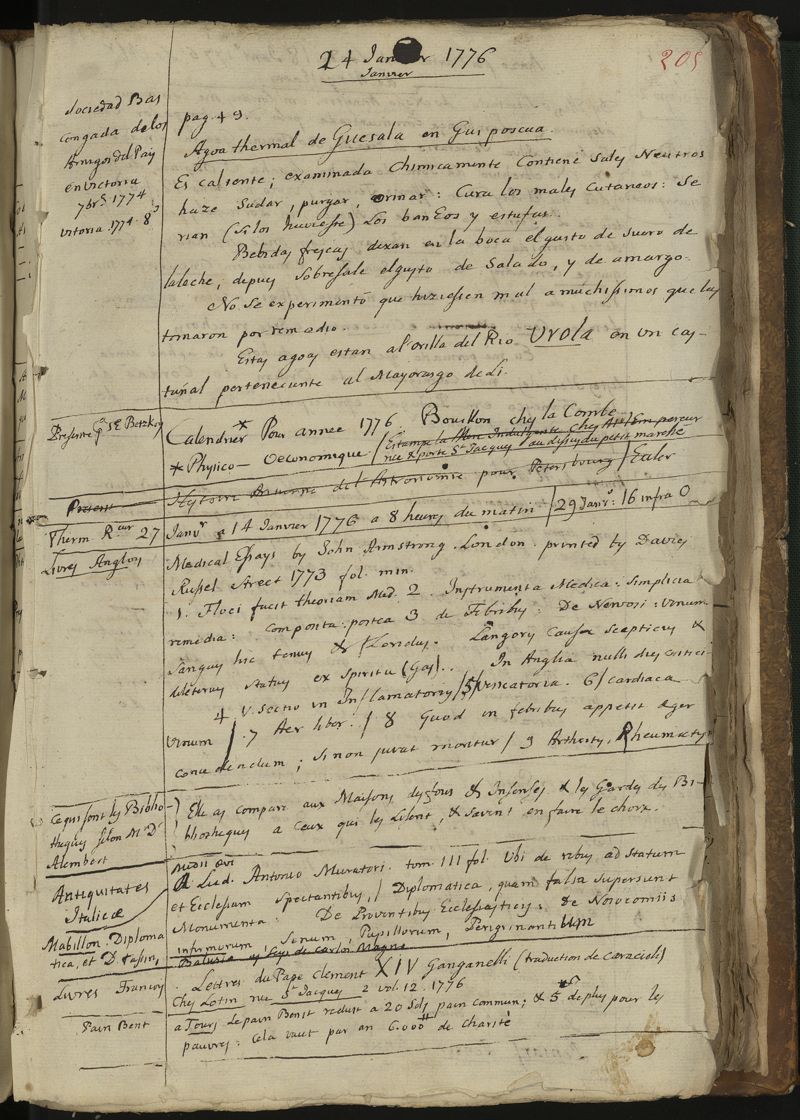 24 Janvier 1776
Janvier
205
Sociedad Bas
congada de los
Amigos del Pay
en victoria
7brs 1774
vitoria 1774. 8º
pag. 49.
Agoa thermal de Guesala en Guiposcua.
Es caliente; examinada Chimicamente contiene sales Neutros
haze sudar, purgar, orinar: cura los males cutaneos: Se
rian (si los huviesse) los banEos y estufas.
Bebidas frescas dexan en la boca el gusto de suero de
laleche, depues sobresale elgusto de salado, y de amargo.
No se experimentó que hiziessen mal a muchissimos que las
tomaron por remedio.
Estas agoas estan al'orilla del Rio Urola en un cas-
tañal perteneciente al Mayorasgo de Li.
Presente S E Betzkoy
Calendrier* Pour annee 1776 Bouillon chez la Combe
* Physico - Oeconomique / Estampe la
rue & porte St Jacques au dessus du petit marché
Present
Histoire del Astronomie pour Petersbourg / Euler
Therm Raur 27
Janvr a 14 Janvier 1776 a 8 heures du matin / 29 Janvr: 16 infra 0
Livres Anglois
Medical Essays by John Armstrong London. printed by Davies
Russel street 1773 fol. min.
1. Floci facit theoriam Med. 2. Instrumenta Medica: simplicia
remedia: composita: postea 3 de Febribus: De Nervosi: vinum
sanguis hic tenuis & floridus. Langory Causa scepticus &
status ex spiritu (Gas).. In Anglia nulli dies critici
4 V. sectio in Inflamatoriis / 5 / vesicatoria. 6 / cardiaca
vinum / .7 Aer liber. / 8 Quod in febribus appetit aeger
concedendum; si non juvat moritur / 9 Arthritis, Rheumatys
Cequi sont les Biblio
theques selon Mr D'
Alembert
Elle as compare aux Maisons des fous & Insensés & les Gardes des Bi-
bliotheques a ceux qui les lisent, & savent en faire le choix.
Antiquitates
Italicæ
medii ævi
A Lud. Antonio Muratori. tom. III fol. Ubi de rebus ad statum
et Ecclesiam spectantibus, / Diplomatica, quam falsa supersunt
Monumenta. De Proventibus Ecclesiasticis: de Nosocomiis
infirmorum, senum, Pupillorum, Peregrinantium
Mabillon. Diploma
tica, et D. Tassin,
Baluzio Leges de Carlos Magno
Livres Francois
. Lettres du Pape Clement XIV Ganganelli (traduction de Caracioli)
Chez Lotin rue St Jacques 2 vol. 12. 1776
Pain Benit
a Tours Lepain Benit reduit a 20 Sols pain commun; & 5 # de plus pour les
pauvres: Cela vaut par an 6.000 # de charité